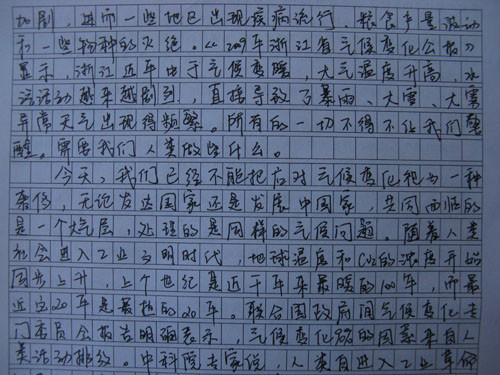 加剧，进而一些地区出现疾病流行，粮食产量波动
和一些物种的灭绝。《2009年浙江省气候变化公报》
显示，浙江近年由于气候变暖，大气温度升高，水
活动越来越剧烈，直接导致了暴雨、大雪、大雾
异常天气出现得频繁。所有的一切不得不让我们警
醒。需要我们人类做些什么。
今天，我们已经不能把应对气候变化视为一种
责任，无论发达国家还是发展中国家，共同面临的
是一个大气层，处理的是同样的气候问题。随着人类
社会进入工业文明时代，地球温度和CO2的浓度开始
同步上升，上个世纪是近千年来最暖的100年，而最
近这20年是最热的20年。联合国政府间气候变化专
门委员会报告明确表示，气候变化的因素来自人
类活动排放。中科院专家说，人类自进入工业革命